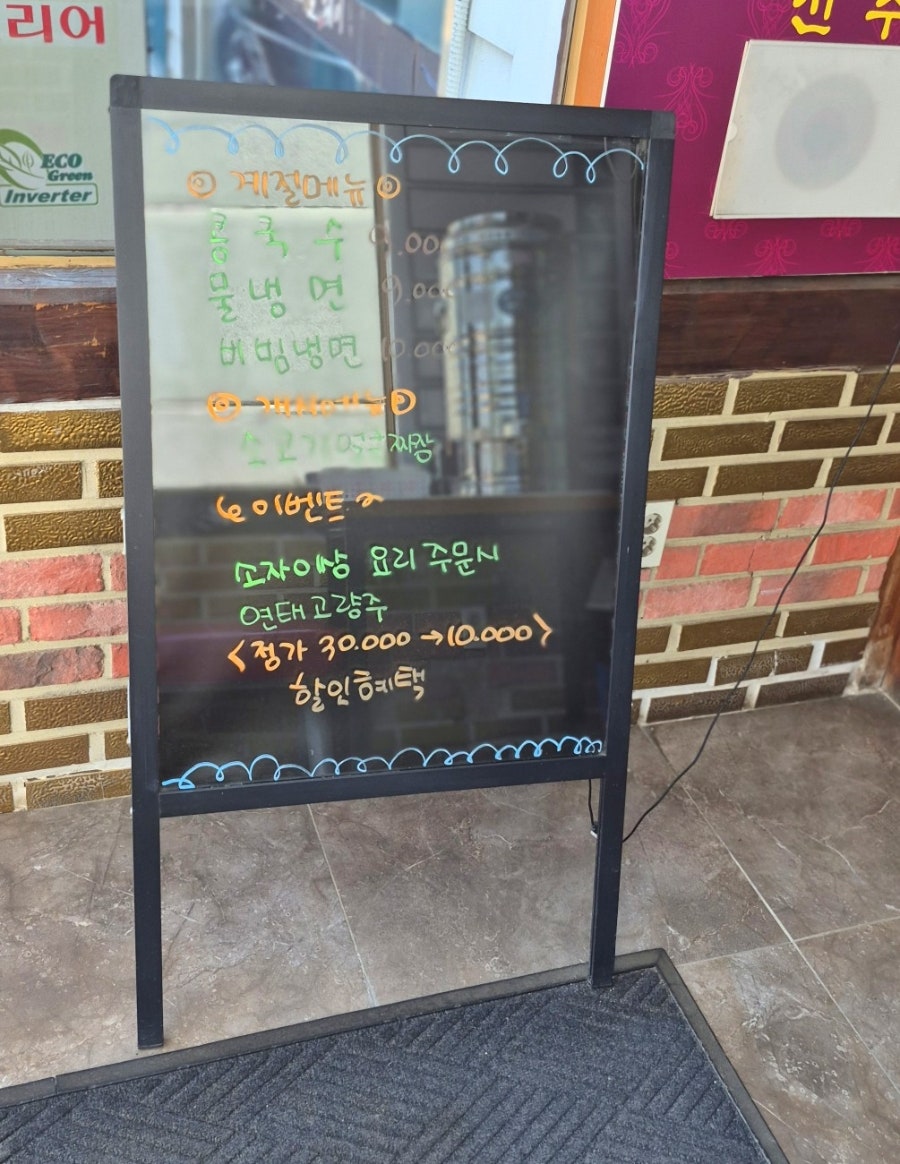 리어
ECO
Green
Inverter
계절메뉴
콩국수 9.000
물냉면 9.000
비빔냉면 10.000
개시메뉴
소고기 짜장
이벤트
소자이상 요리 주문시
연태고량주
<정가 30.000→10.000>
할인혜택